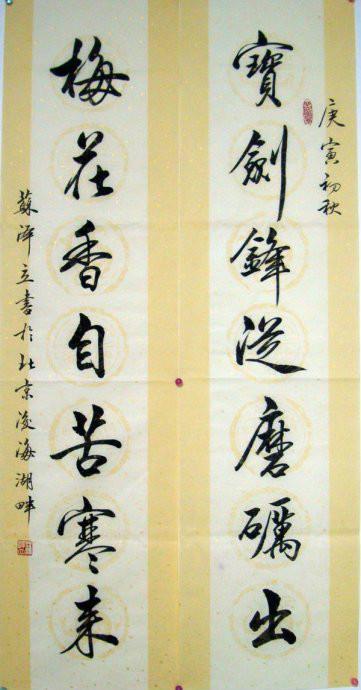 庚寅初秋
寶劍鋒從磨礪出
梅花香自苦寒来
蘇泽立書於北京後海湖畔